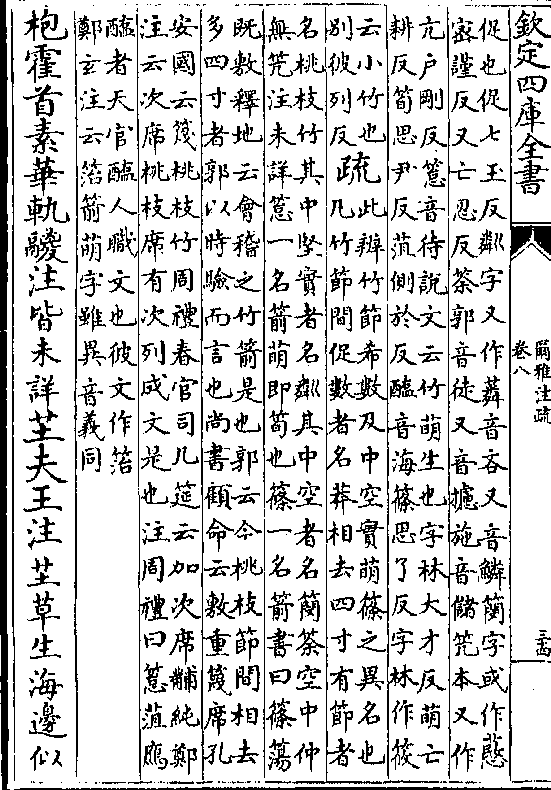 欽定四庫全書
爾雅注疏
卷八
促也促七玉反粼字又作𥴸音吝又音鱗䕞字或作憖
密謹反又亡忍反荼郭音徒又音攄施音儲竻本又作
亢戶剛反䈚音待說文云竹萌生也字林大才反萌亡
耕反筍思尹反菹側於反醢音海篠思了反字林作筱
云小竹也
別彼列反
疏
此辨竹節希數及中空實萌篠之異名也
凡竹節間促數者名莽相去四寸有節者
名桃枝竹其中堅實者名粼其中空者名䕞荼空中仲
無竻注未詳䈚一名箭萌即筍也篠一名箭書曰篠簜
既敷釋地云會稽之竹箭是也郭云今桃枝節間相去
多四寸者郭以時驗而言也尚書顧命云敷重篾席孔
安國云篾桃枝竹周禮春官司几筵云加次席黼純鄭
注云次席桃枝席有次列成文是也注周禮曰䈚菹鴈
醢者天官醢人職文也彼文作箈
鄭玄注云箈箭萌字雖異音義同
枹霍首素華軌鬷注皆未詳芏夫王注芏草生海邊似